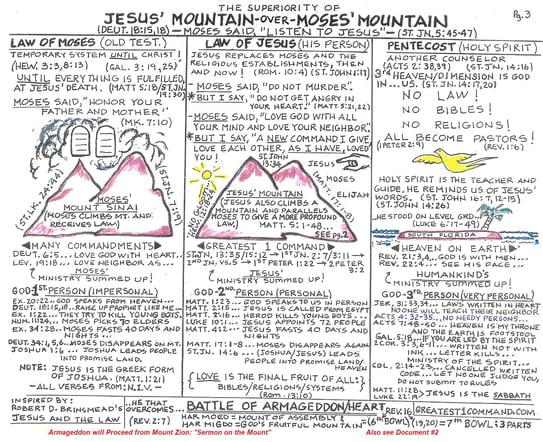 THE SUPERIORITY OF
Pg. 3
JESUS' MOUNTAIN-OVER-MOSES' MOUNTAIN
(DEUT. 18:15,18) — MOSES SAID, "LISTEN TO JESUS" — (ST. JN. 5:45-47)
LAW OF MOSES (OLD TEST.)
TEMPORARY SYSTEM UNTIL CHRIST!
(HEW. 3:3,8:13) (GAL. 3:19,25)
UNTIL EVERYTHING IS FULFILLED,
AT JESUS' DEATH. (MATT 5:18/ST.JN. 19:30)
MOSES SAID, "HONOR YOUR
FATHER AND MOTHER"
(MK. 7:10)
(ST.LK. 24:44)
(ST.JN. 7:19)
MOSES'
MOUNT SINAI
(MOSES CLIMBS MT. AND
RECEIVES LAW)
MANY COMMANDMENTS
DEUT. 6:5... LOVE GOD WITH HEART..
LEV. 19:18... LOVE NEIGHBOR AS...
MOSES'
MINISTRY SUMMED UP!
GOD 1ST PERSON (IMPERSONAL)
EX. 20:22.. GOD SPEAKS FROM HEAVEN
DEUT. 18:15,18.. RAISE UP PROPHET LIKE ME
EX. 1:22... THEY TRY TO KILL YOUNG BOYS.
NUM. 11:24.. MOSES PICKS 70 ELDERS
EX. 34:28.. MOSES FASTS 40 DAYS AND
NIGHTS...
DEUT. 34:1,5,6.. MOSES DISAPPEARS ON MT.
JOSHUA 1:6 ... JOSHUA LEADS PEOPLE
INTO PROMISE LAND.
NOTE: JESUS IS THE GREEK FORM
OF JOSHUA. (MATT. 1:21)
-ALL VERSES FROM: N.I.V.-
LAW OF JESUS (HIS PERSON)
JESUS REPLACES MOSES AND THE
RELIGIOUS ESTABLISHMENTS, THEN
AND NOW! (ROM. 10:4) (ST. JOHN 1:17)
-MOSES SAID, "DO NOT MURDER."
*BUT I SAY, "DO NOT GET ANGRY IN
YOUR HEART." (MATT 5:21,22)
-MOSES SAID, "LOVE GOD WITH ALL
YOUR MIND AND LOVE YOUR NEIGHBOR."
*BUT I SAY, "A NEW COMMAND I GIVE
LOVE EACH OTHER, AS I HAVE LOVED
YOU!
ST. JOHN
13:34
JESUS
MOSES
ELIJAH
JESUS' MOUNTAIN
(JESUS ALSO CLIMBS A
MOUNTAIN AND PARALLELS
MOSES TO GIVE A MORE PROFOUND
LAW.) MATT. 5:1-48...
SEE pg. 2
GREATEST 1 COMMAND
ST.JN. 13:35/15:12 → 1ST JN. 2:7/3:11
2ND JN. VS.5 → 1ST PETER 1:22 → 2PETER
3:2
JESUS'
MINISTRY SUMMED UP!
GOD 2ND PERSON (PERSONAL)
MATT. 1:23... GOD SPEAKS TO US IN PERSON
MATT. 2:15... JESUS IS CALLED FROM EGYPT
MATT. 2:16... HEROD KILLS YOUNG BOYS..
LUKE 10:1... JESUS APPOINTS 72 PEOPLE
MATT. 4:2... JESUS FASTS 40 DAYS AND
NIGHTS
MATT. 17:1-8... MOSES DISAPPEARS AGAIN
ST.JN. 14:6... (JOSHUA/JESUS) LEADS
PEOPLE INTO PROMISE LAND/
HEAVEN
{LOVE IS THE FINAL FRUIT OF ALL:}
BIBLES/RELIGIONS/SYSTEMS
(ROM. 13:10)
PENTECOST (HOLY SPIRIT)
ANOTHER COUNSELOR
(ACTS 2:38,39) (ST.JN. 14:16)
3RD HEAVEN/DIMENSION IS GOD
IN...US. (ST.JN. 14:17,20)
NO LAW!
NO BIBLES!
NO RELIGIONS!
ALL BECOME PASTORS!
(1PETER 2:9) (REV. 1:6)
HOLY SPIRIT IS THE TEACHER AND
GUIDE, HE REMINDS US OF JESUS'
WORDS. (ST. JOHN 16:7,12-15)
(ST. JOHN 14:26)
..HE STOOD ON LEVEL GRD..
(LUKE 6:17-49)
SOUTH FLORIDA
HEAVEN ON EARTH
REV. 21:3,4.. GOD IS WITH MEN...
REV. 22:4... SEE HIS FACE...
HUMANKIND'S
MINISTRY SUMMED UP!
GOD-3RD PERSON (VERY PERSONAL)
JER. 31:33,34.. LAWS WRITTEN IN HEART
NO ONE WILL TEACH THEIR NEIGHBOR
ACTS 4:32-35.. NO NEEDY PERSONS...
ACTS 7:48-50 ... HEAVEN IS MY THRONE
AND THE EARTH IS FOOTSTOOL
GAL. 5:18... IF YOU ARE LED BY THE SPIRIT
2COR. 3:3,6-11... WRITTEN NOT WITH
INK... LETTER KILLS...
MINISTRY OF THE SPIRIT...
COL. 2:14-23... CANCELLED WRITTEN
CODE ... LET NO ONE JUDGE YOU,
DO NOT SUBMIT TO RULES
MATT. 11:28
LUKE 22:19 > JESUS IS THE SABBATH
INSPIRED BY:
ROBERT D. BRINSMEAD'S
JESUS AND THE LAW
..HE THAT
OVERCOMES...
(REV. 2:7)
BATTLE OF ARMAGEDDON/HEART
HAR MOED = MOUNT OF ASSEMBLY &
HAR MIGDO = GOD'S FRUITFUL MOUNTAIN
REV. 16 GREATEST1COMMAND.COM
(6TH BOWL) (19,20) = 7TH BOWL = 3 PARTS
Armageddon will Proceed from Mount Zion: "Sermon on the Mount"
Also see Document #2